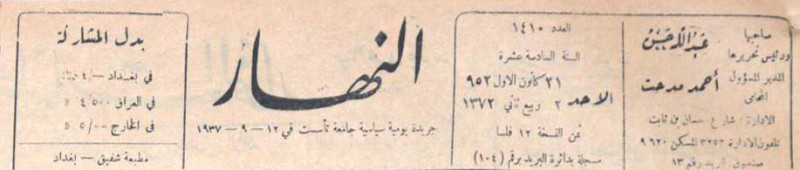 صاحبها
ورئيس تحريرها
عبدالله حسن
المدير المسؤول
المحامي
أحمد مدحت
الادارة : شارع حسان بن ثابت
تلفون الادارة ٣٢٥٣ المسكن ٩٦٢٠
صندوق البريد رقم ١٣
العدد ١٤١٠
السنة السادسة عشرة
الاحد
٢١ كانون الاول ٩٥٢
٢ ربيع ثاني ١٣٧٢
ثمن النسخة ١٢ فلسا
مسجلة بدائرة البريد برقم (١٠٤)
النهار
جريدة يومية سياسية جامعة تأسست في ١٢ - ٩ - ١٩٣٧
بدل المشاركة
في بغداد ٤/٠٠
في العراق ٤/٥٠٠
في الخارج ٥/٠٠
مطبعة شفيق - بغداد